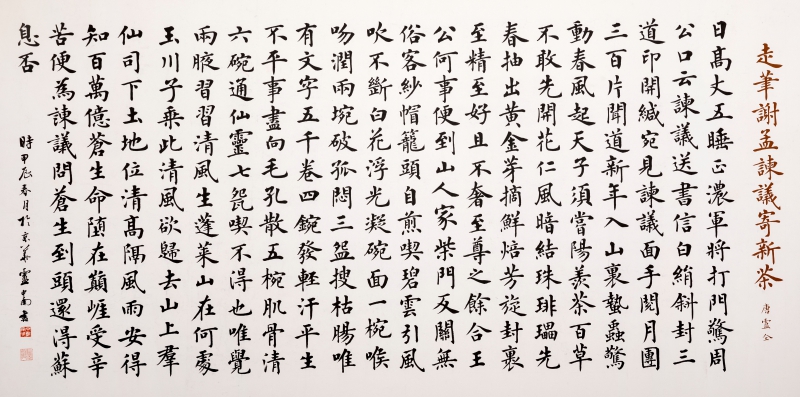 走筆謝孟諫議寄新茶
唐盧仝
日高丈五睡正濃軍將打門驚周
公口云諫議送書信白絹斜封三
道印開緘宛見諫議面手閱月團
三百片聞道新年入山裏蟄蟲驚
動春風起天子須嘗陽羨茶百草
不敢先開花仁風暗結珠琲瓃先
春抽出黃金芽摘鮮焙芳旋封裹
至精至好且不奢至尊之餘合王
公何事便到山人家柴門反關無
俗客紗帽籠頭自煎喫碧雲引風
吹不斷白花浮光凝碗面一椀喉
吻潤兩埦破孤悶三盌搜枯腸唯
有文字五千卷四鋺發輕汗平生
不平事盡向毛孔散五椀肌骨清
六碗通仙靈七㼝喫不得也唯覺
兩腋習習清風生蓬萊山在何處
玉川子乘此清風欲歸去山上羣
仙司下土地位清高隔風雨安得
知百萬億蒼生命墮在巔崖受辛
苦便為諫議問蒼生到頭還得蘇
息否
時甲辰春月於京華盧中南書